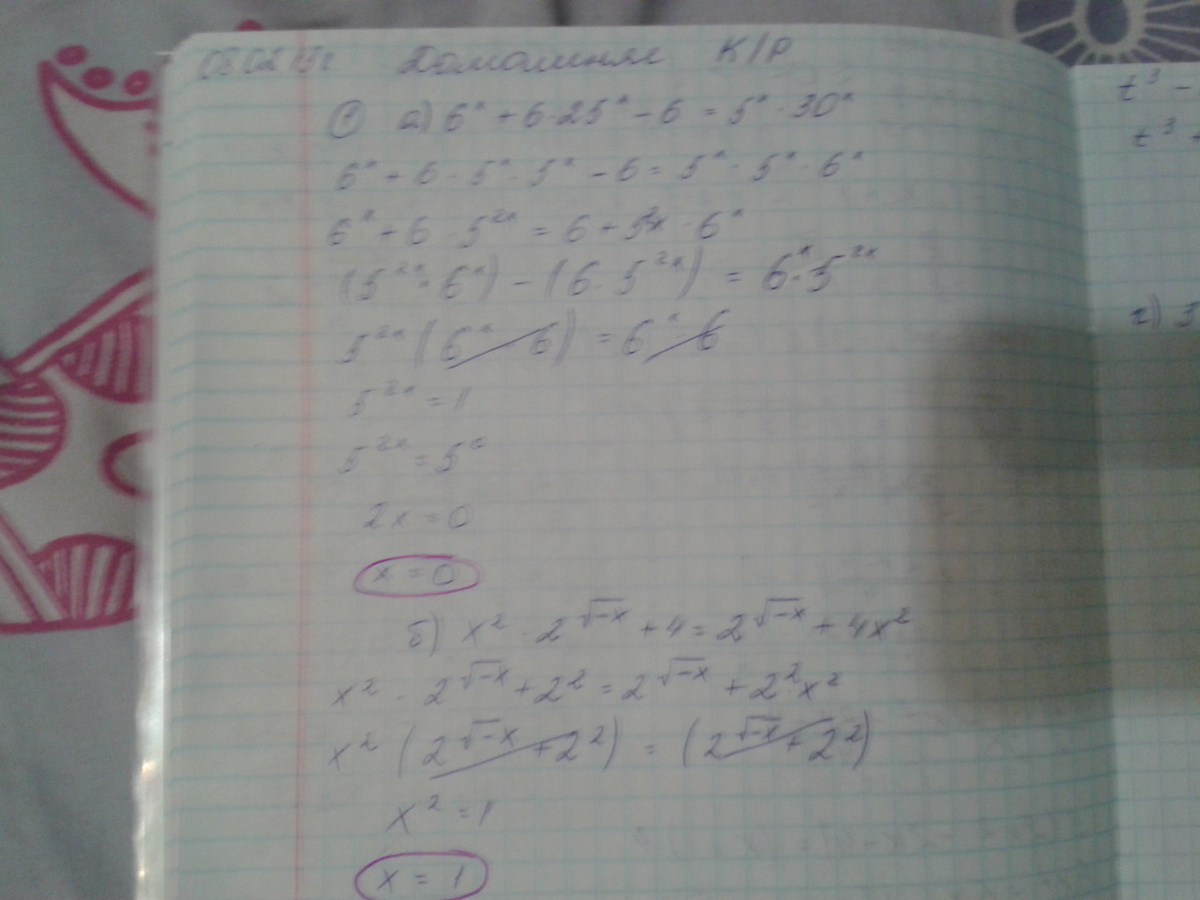 Домашняя К/Р
① а) 6ˣ + 6·25ˣ - 6 = 5ˣ · 30ˣ
6ˣ + 6 · 5ˣ · 5ˣ - 6 = 5ˣ · 5ˣ · 6ˣ
6ˣ + 6 · 5²ˣ = 6 + 5²ˣ · 6ˣ
(5²ˣ · 6ˣ) - (6 · 5²ˣ) = 6ˣ · 5²ˣ
5²ˣ (6ˣ - 6) = 6ˣ - 6
5²ˣ = 1
5²ˣ = 5⁰
2x = 0
x = 0
б) x² · 2^√-x + 4 = 2^√-x + 4x²
x² · 2^√-x + 2² = 2^√-x + 2²x²
x² (2^√-x + 2²) = (2^√-x + 2²)
x² = 1
x = 1
t³ -
t³ +
г) 3